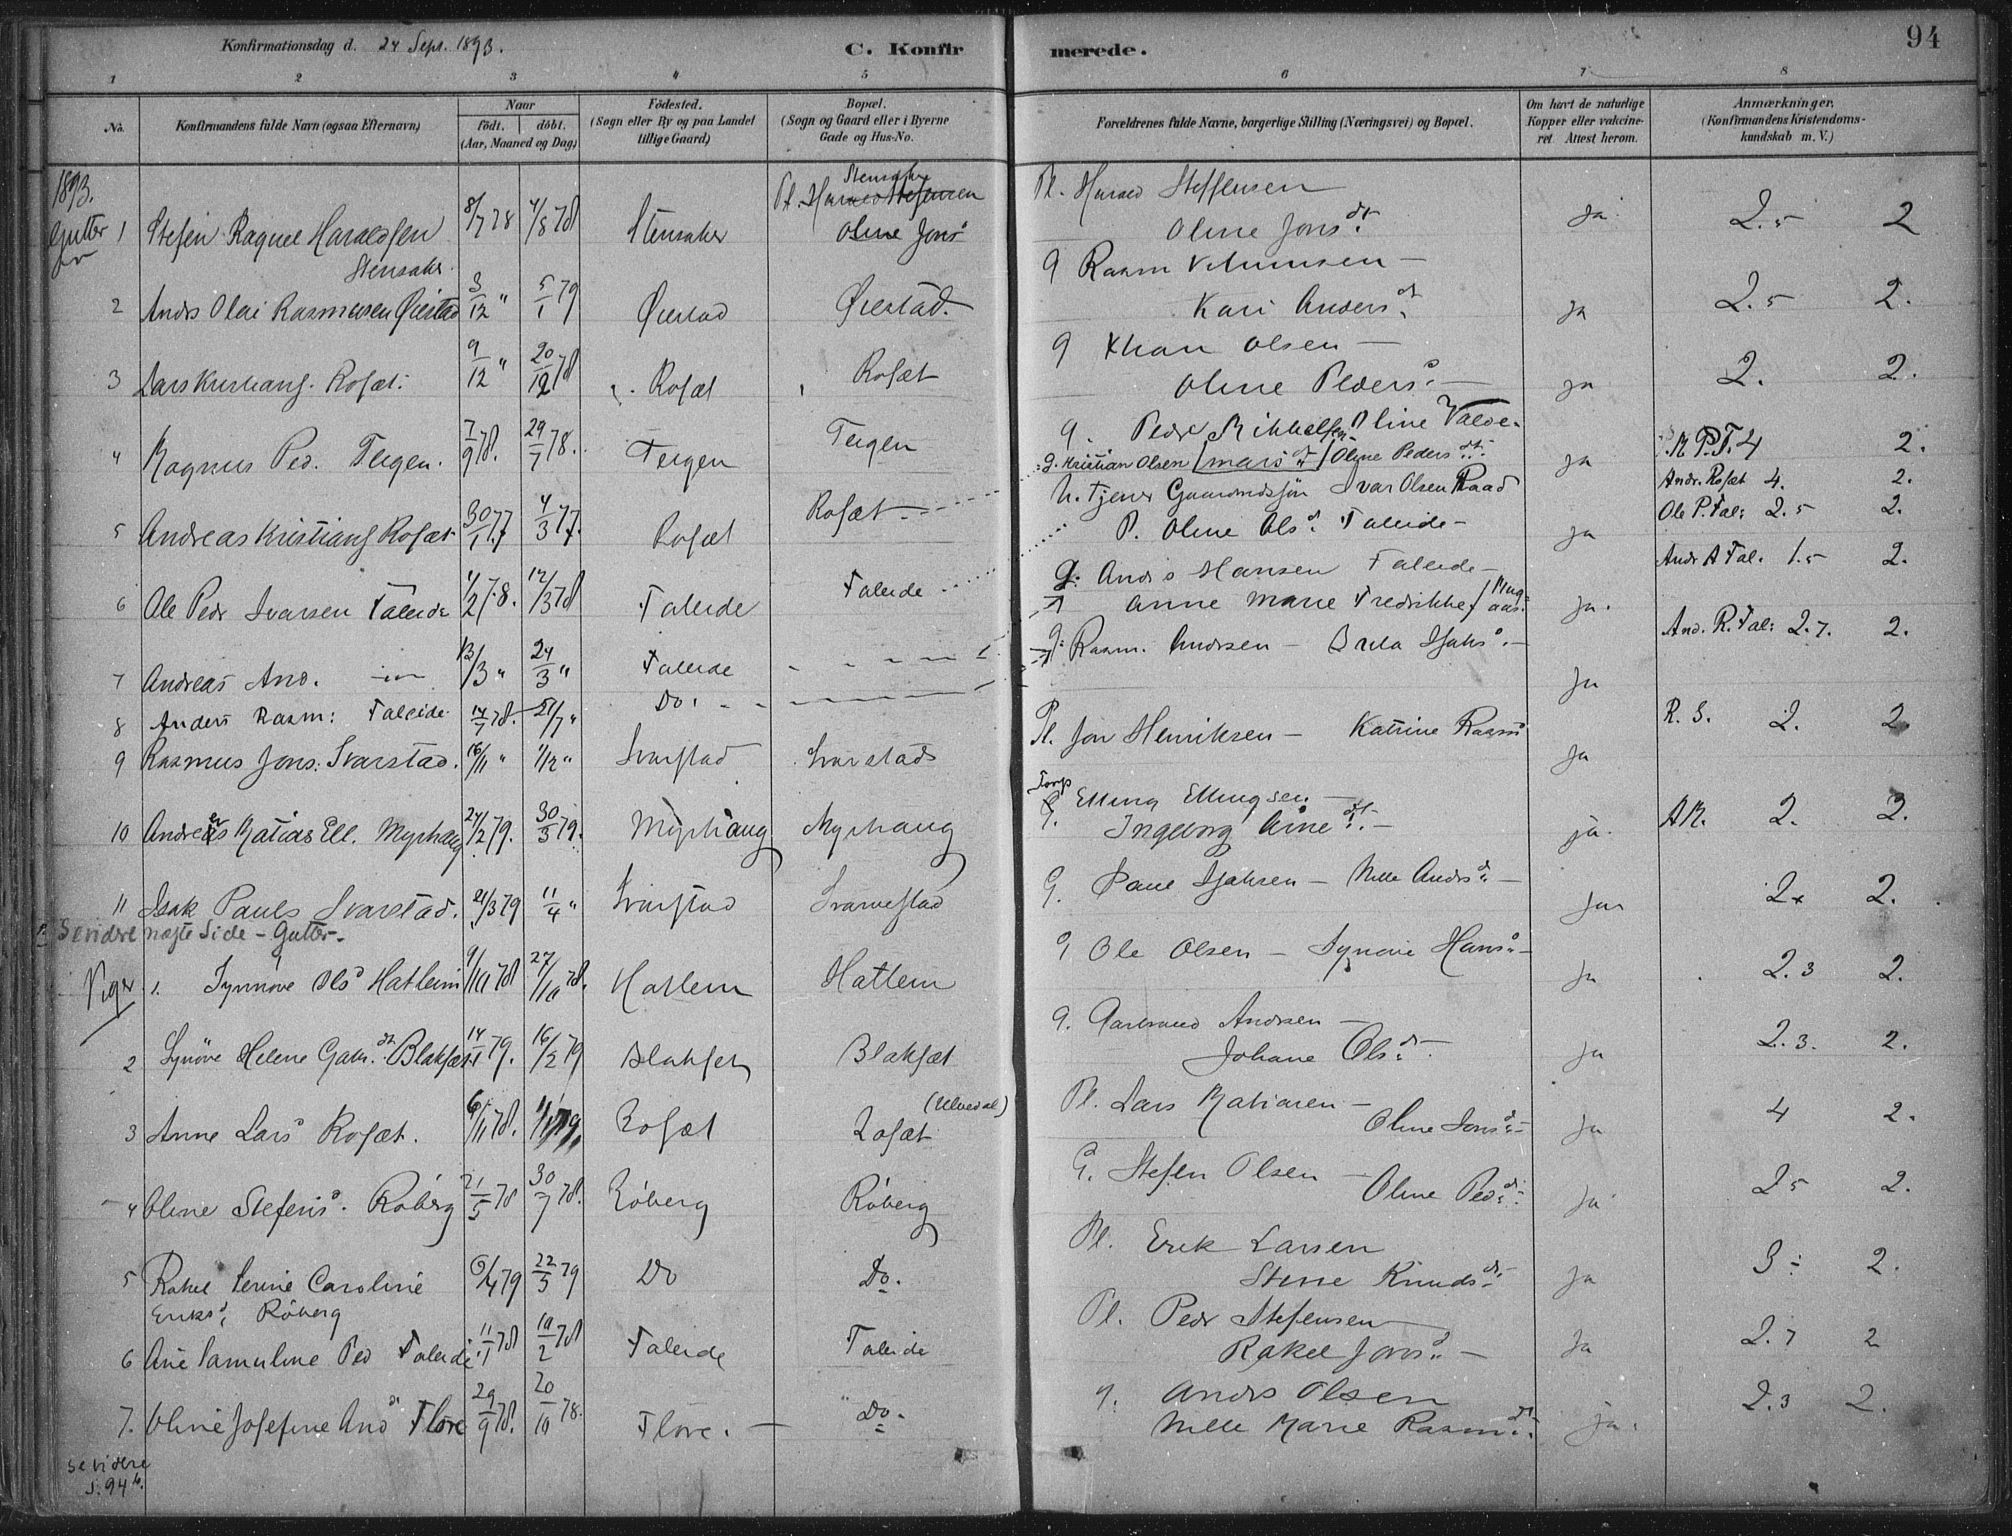 Konfirmationsdag d. 24 Sept. 1893.
C. Konfirmerede.
94
1 2 3 4 5 6 7 8
No.
Konfirmandens fulde Navn (ogsaa Efternavn)
Naar
födt. döbt.
(Aar, Maaned og Dag)
Födested.
(Sogn eller By og paa Landet
tillige Gaard)
Bopæl.
(Sogn og Gaard eller i Byerne
Gade og Hus-No.
Forældrenes fulde Navne, borgerlige Stilling (Næringsvei) og Bopæl.
Om havt de naturlige
Kopper eller vakcine-
ret. Attest herom.
Anmærkninger.
(Konfirmandens Kristendoms-
kundskab m. V.)
1893.
Gutter
1 Stefen Ragnel Haraldsen 8/7 78 4/8 78 Stensaker Oline Jons Pl. Harald Steffensen ja 2.5 2
Stensakr.
Oline Jonsdt.
2 Andrs Olai Rasmussen Öiestad 3/12 " 5/1 79 Öiestad Öiestad. g Rasm ja 2.5 2.
Kari Andersdt.
3 Lars Kristians. Rosæt. 9/12 " 20/12 78 Rosæt Rosæt g Olsen ja 2. 2.
Oline Peders.
4 Magnus Ped. Teigen. 7/9 78. 29/7 78. Teigen Teigen g. Pedr Mikkelsen Oline Valde- ja M P.T. 4 2.
g. Kristian Olsen Oline Peders
5 Andreas Kristians Rosæt 30/1 77 4/3 77. Rosæt Rosæt ja Andr. Rosæt 4. 2.
U. Tjener Ivar Olsen Raad
P. Oline Ols. Faleide -
6 Ole Pedr Ivarsen Faleide 1/2 78. 12/3 78 Faleide Faleide ja. Ole P. Fal: 2.5 2.
g: Andrs Hansen Faleide -
Anne Marie Fredrikke
7 Andreas And. 13/3 " 24/3 " Faleide ja Andr A Fal. 1.5 2.
8 Anders Rasm: Faleide 14/7 78. 21/7 " Do. And. R. Fal: 2.7. 2.
g: Rasm. Andrsen - Brita
9 Rasmus Jons: Svarstad. 16/11 " 1/12 " Svarstad Svarstad Pl. Jon Henriksen - Katrine Rasms ja R. S. 2. 2
10 Andreas Matias Ell. Myrhaug 24/2 79. 30/3 79. Myrhaug Myrhaug Elling Ellingsen - ja. AM. 2. 2.
Ingeborg Arnedt. -
11 Isak Pauls Svarstad. 21/3 79 11/4 " Svarstad Svarvestad G. Paul Isaksen - Nille Andrs - ja 2 2.
Se videre næste Side - Gutter -
Piger 1. Synnöve Ols Hatleim 9/10 78 27/10 78. Hatlem Hatlem g Ole Olsen - Synöve Hans - ja 2.3 2.
2 Synöve Helene Blaksæt 14/1 79. 16/2 79 Blaksæt Blaksæt g. Andrsen - ja 2.3. 2.
Johane Ols
3 Anne Lars Rosæt. 6/11 78. Rosæt Rosæt Pl. Lars - ja 4 2.
Oline
4 Oline Stefens. Röberg 21/5 78 30/7 78. Röberg Röberg G. Stefen Olsen - ja 2.5 2.
Oline Ped
5 Rakel Serine Caroline 6/4 79 22/5 79 Do Do. Pl. Erik Larsen ja 3 2.
Eriks. Röberg
Stine Knuds
6 Ane Samuline Ped Faleide 11/1 78 10/2 78 Faleide Faleide Pl. Pedr Stefensen ja 2.7 2
Rakel Jons -
7. Oline Josefine And Flore 29/9 78. 20/10 78. Flore. - Do. g. Andrs Olsen ja. 2.3 2.
Nille Marie Rasm
se videre
s. 94 b.